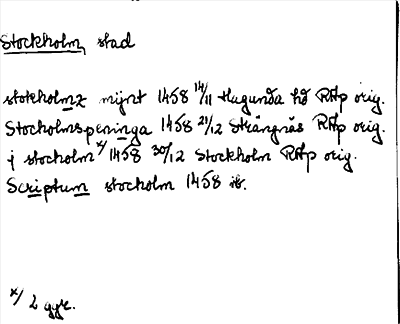 Stockholm, stad
stokholmz mijnt 1458 14/11 Hagunda hd RAp orig.
Stocholmspeninga 1458 21/12 Strängnäs RAp orig.
j stocholm x/ 1458 30/12 Stockholm RAp orig.
Scriptum stocholm 1458 ib.
x/ 2 ggr.